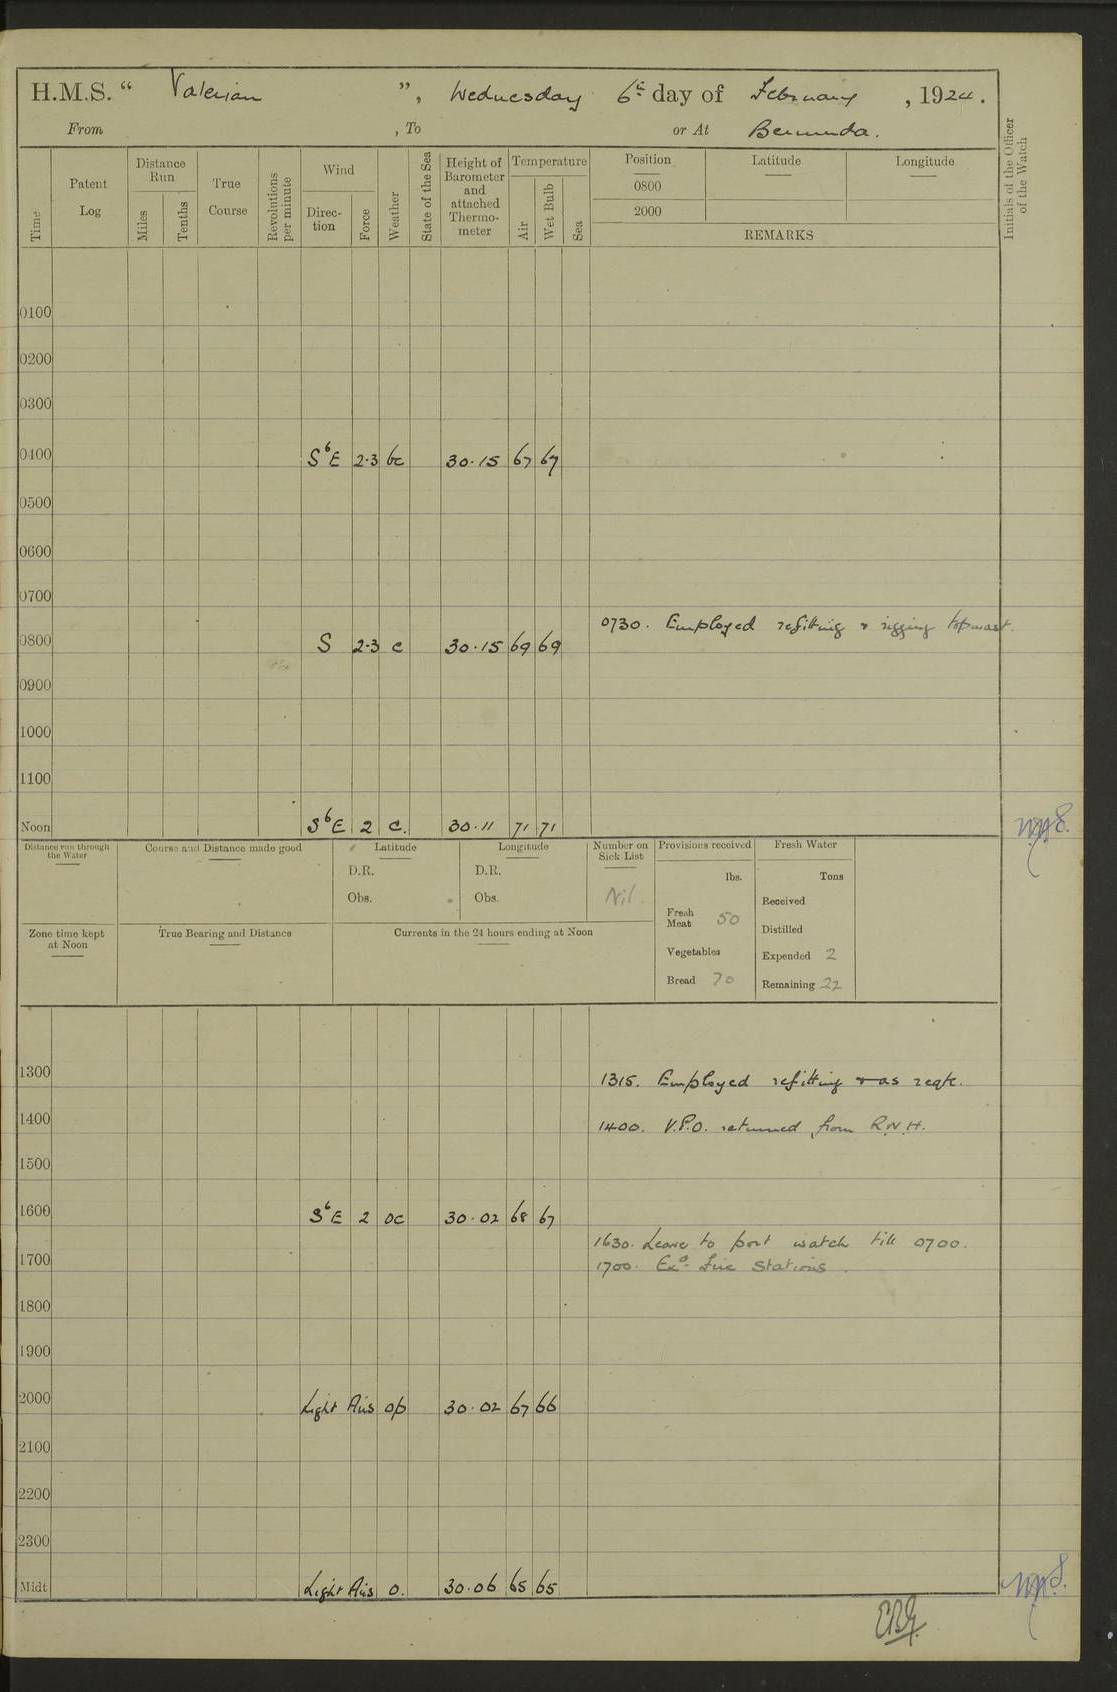 H.M.S. “ Valerian ”, Wednesday 6th day of February, 1924.
From , To or At Bermuda.
Time
Patent Log
Distance Run
Miles
Tenths
True Course
Revolutions per minute
Wind
Direction
Force
Weather
State of the Sea
Height of Barometer and attached Thermometer
Temperature
Air
Wet Bulb
Sea
Position
0800
2000
Latitude
Longitude
REMARKS
Initials of the Officer of the Watch
0100
0200
0300
0400 SbE 2·3 bc 30·15 67 67
0500
0600
0700
0730. Employed refitting & rigging topmast.
0800 S 2·3 c 30·15 69 69
0900
1000
1100
Noon SbE 2 c. 30·11 71 71
Distance run through the Water
Course and Distance made good
Latitude
D.R.
Obs.
Longitude
D.R.
Obs.
Number on Sick List
Nil.
Provisions received
lbs.
Fresh Meat 50
Vegetables
Bread 70
Fresh Water
Tons
Received
Distilled
Expended 2
Remaining 22
Zone time kept at Noon
True Bearing and Distance
Currents in the 24 hours ending at Noon
1300 1315. Employed refitting & as reqte.
1400 1400. V.P.O. returned from R.N.H.
1500
1600 SbE 2 oc 30·02 68 67
1630. Leave to port watch till 0700.
1700 1700. Exd. Fire Stations.
1800
1900
2000 Light Airs op 30·02 67 66
2100
2200
2300
Midt Light Airs o. 30·06 65 65